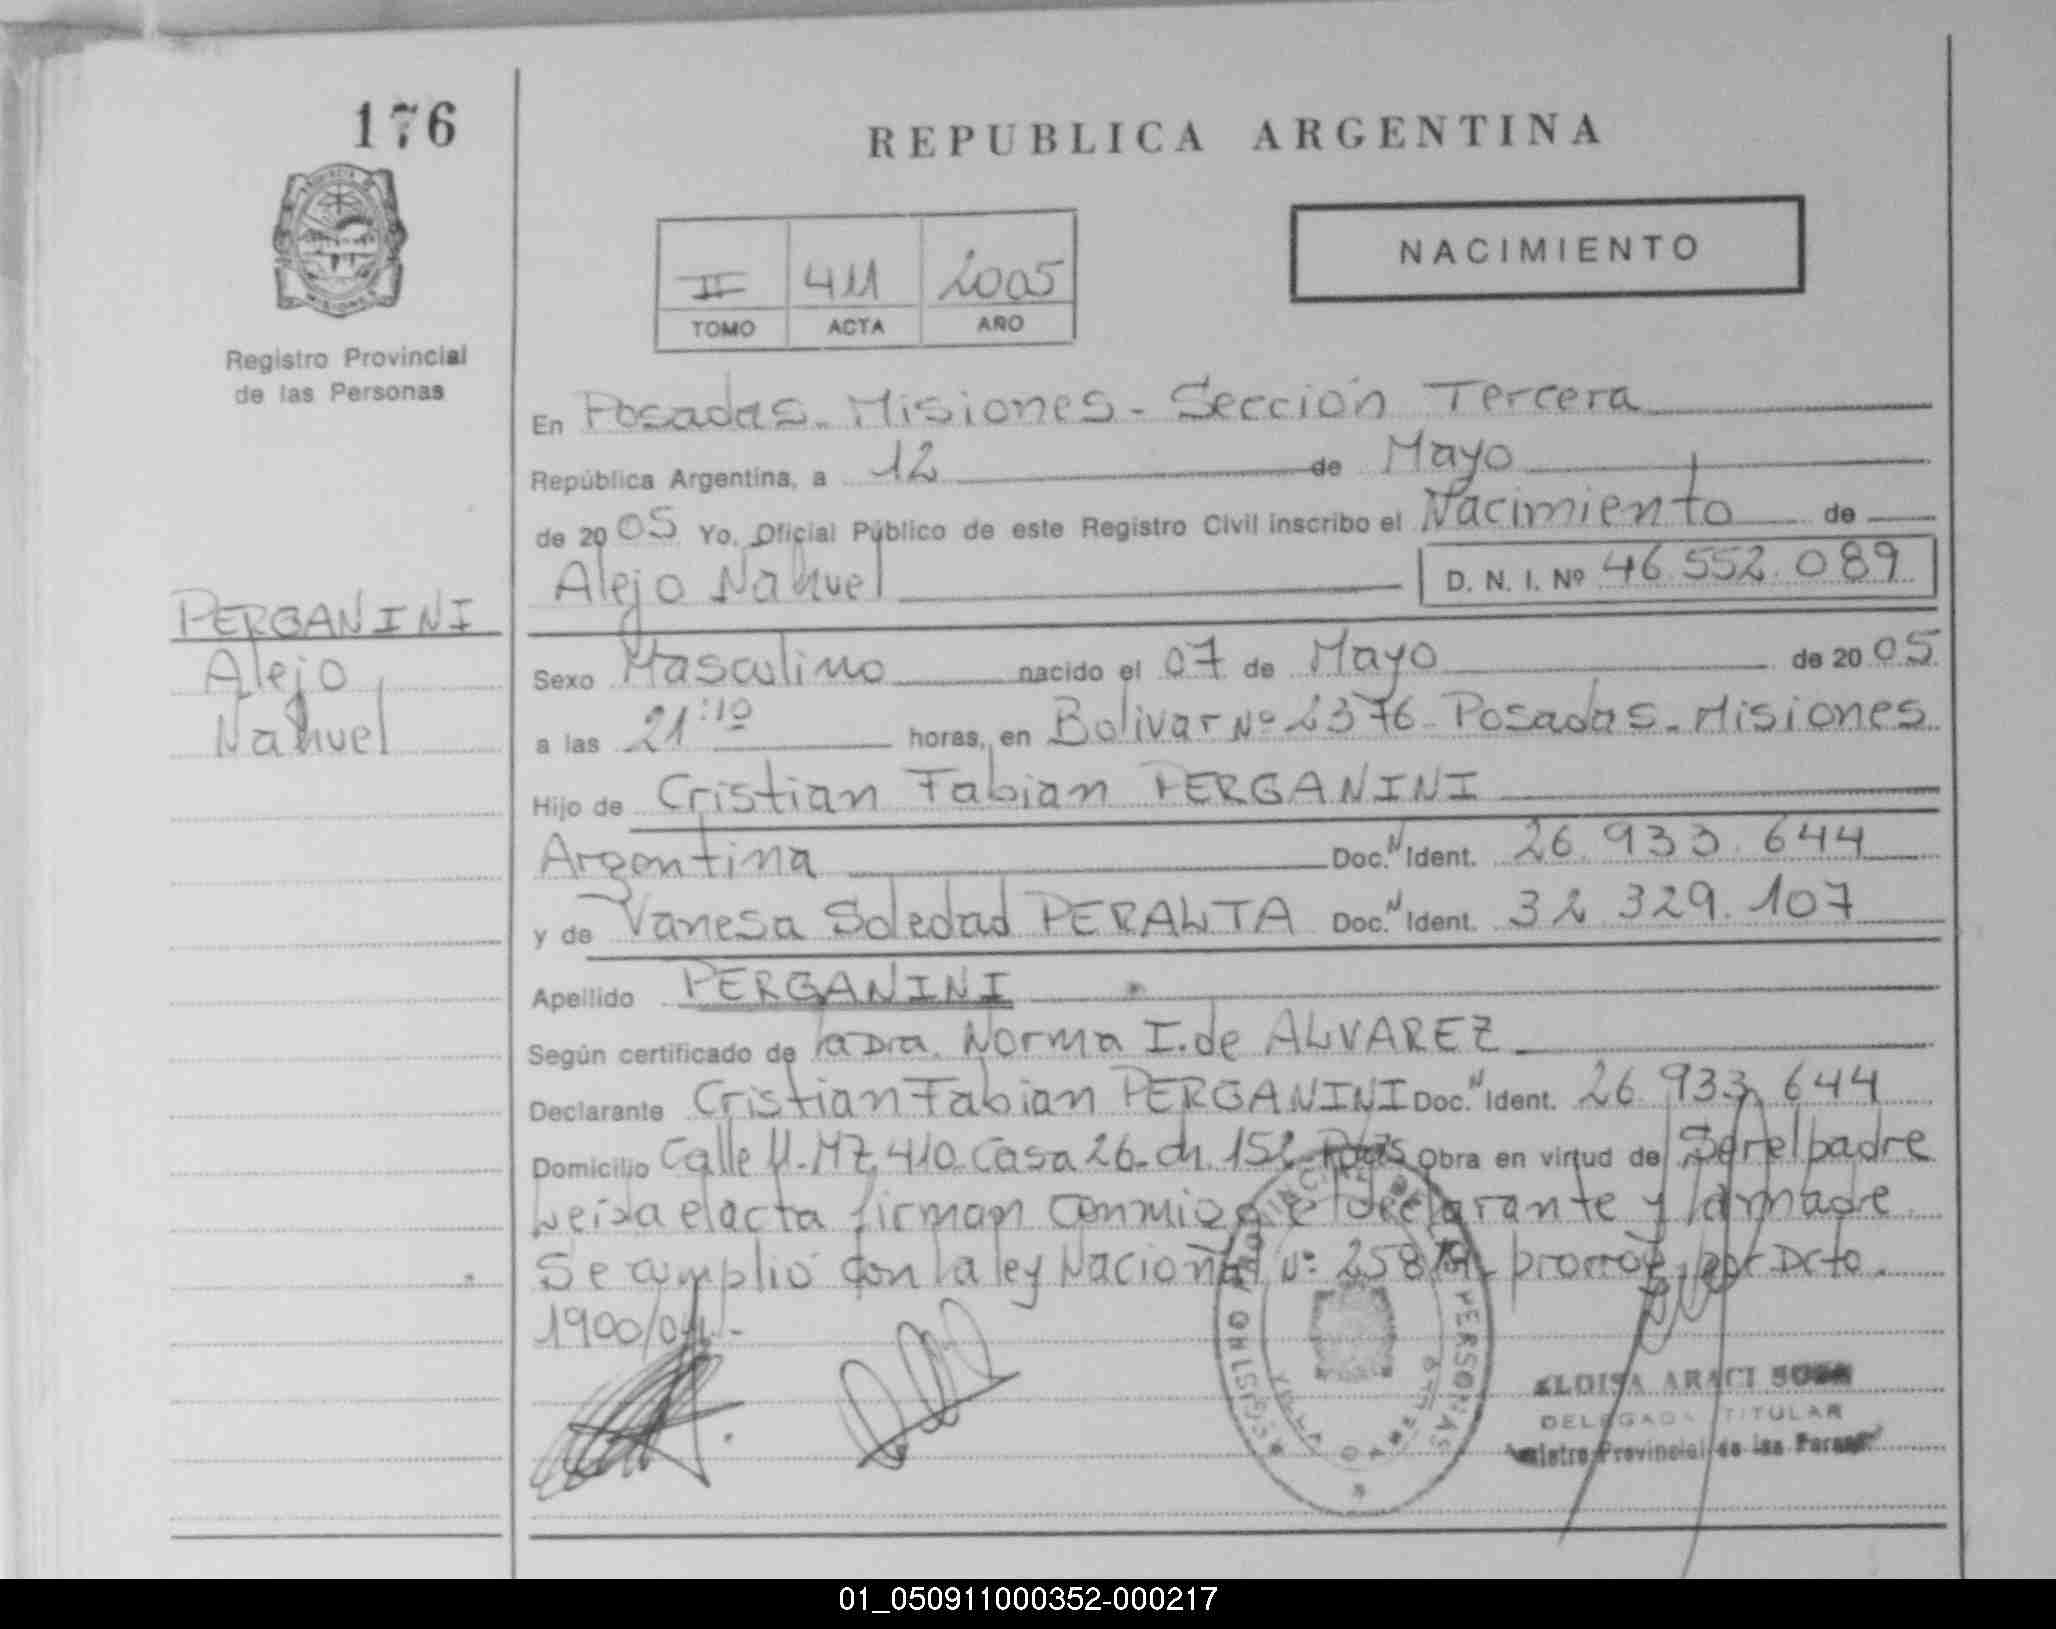 176
REPUBLICA ARGENTINA
NACIMIENTO
II 411 2005
TOMO ACTA AÑO
Registro Provincial
de las Personas
En Posadas. Misiones - Sección Tercera
República Argentina, a 12 de Mayo
de 2005 Yo, Oficial Público de este Registro Civil inscribo el Nacimiento de
Alejo Nahuel D. N. I. Nº 46.552.089
PERGANINI
Alejo
Nahuel
Sexo Masculino nacido el 07 de Mayo de 2005
a las 21:10 horas, en Bolivar Nº 2376 - Posadas - Misiones
Hijo de Cristian Fabian PERGANINI
Argentina Doc. N Ident. 26.933.644
y de Vanesa Soledad PERALTA Doc. N Ident. 32.329.107
Apellido PERGANINI
Según certificado de la Dra. Norma I. de ALVAREZ
Declarante Cristian Fabian PERGANINI Doc. N Ident. 26.933.644
Domicilio Calle 11. MZ 410 Casa 26. ch. 152 Pdas Obra en virtud de Ser el padre
Leída el acta firman conmigo el declarante y la madre.
Se cumplió con la ley Nacional Nº 25819 prorrog. por Dcto.
1900/04.-
REGISTRO PROVINCIAL DE LAS PERSONAS
ELOISA ARACI SOSA
DELEGADA TITULAR
Registro Provincial de las Personas
01_050911000352-000217